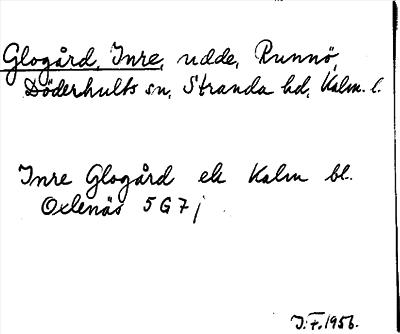 Glogård, Inre, udde, Runnö,
Döderhults sn, Stranda hd, Kalm. l.
Inre Glogård ek Kalm bl.
Oxlenäs 5G7j
J.F. 1956.